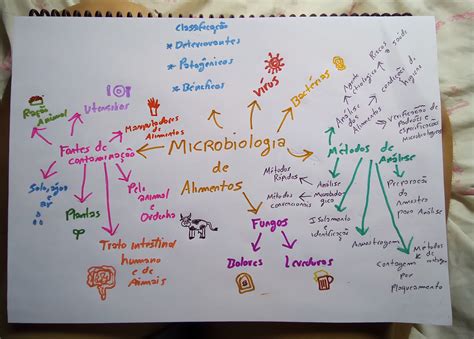 Classificação
* Deteriorantes
* Patogênicos
* Benéficos
Vírus
Bactérias
Riscos
à saúde
Agente
Etiológico
condições de
higiene
Análise
dos
Alimentos
Verificação de
Padrões e
especificação
microbiológica
Ração
Animal
Utensilios
Manipuladores
de
Alimentos
Fontes de
contaminação
Microbiologia
de
Alimentos
Métodos de
Análise
Métodos
Rápidos
Análise
Métodos
convencionais
Isolamento
e
identificação
Preparação
da
Amostra
para Análise
Amostragem
Métodos de
Contagem
por
Plaqueamento
Solo, água e
ar
Plantas
Pele
animal
e
Ordenha
Trato intestinal
humano
e de
Animais
Fungos
Bolores
Leveduras